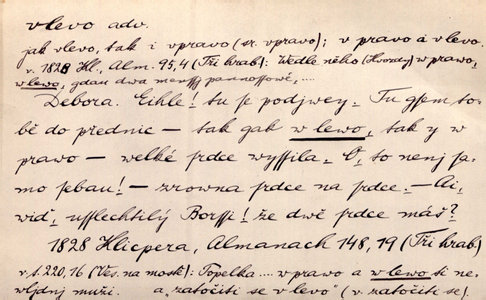 vlevo adv.
jak vlevo, tak i vpravo (sr. vpravo); v pravo a v levo.
v. 1828 Kl., Alm. 95,4 (Tři hrab): Wedle něho (Hvozdy) w prawo,
w lewo, gdau dwa menssj pannossowé, ....
Debora. Eihle! tu je podjwey – Tu gsem so-
bě do přednic – tak gak w lewo, tak y w
prawo – welké srdce wyssila. O, to nenj sa-
mo sebau! – zrowna srdce na srdce. – Ai,
wid', usslechtilý Borssi! že dwě srdce máš?
1828 Klicpera, Almanach 148,19 (Tři hrab)
v. t. 220,16 (Ves. na mostě): Topelka .... w prawo a w lewo si ne-
muži. a "zatočiti se v levo" (v. zatočiti se).